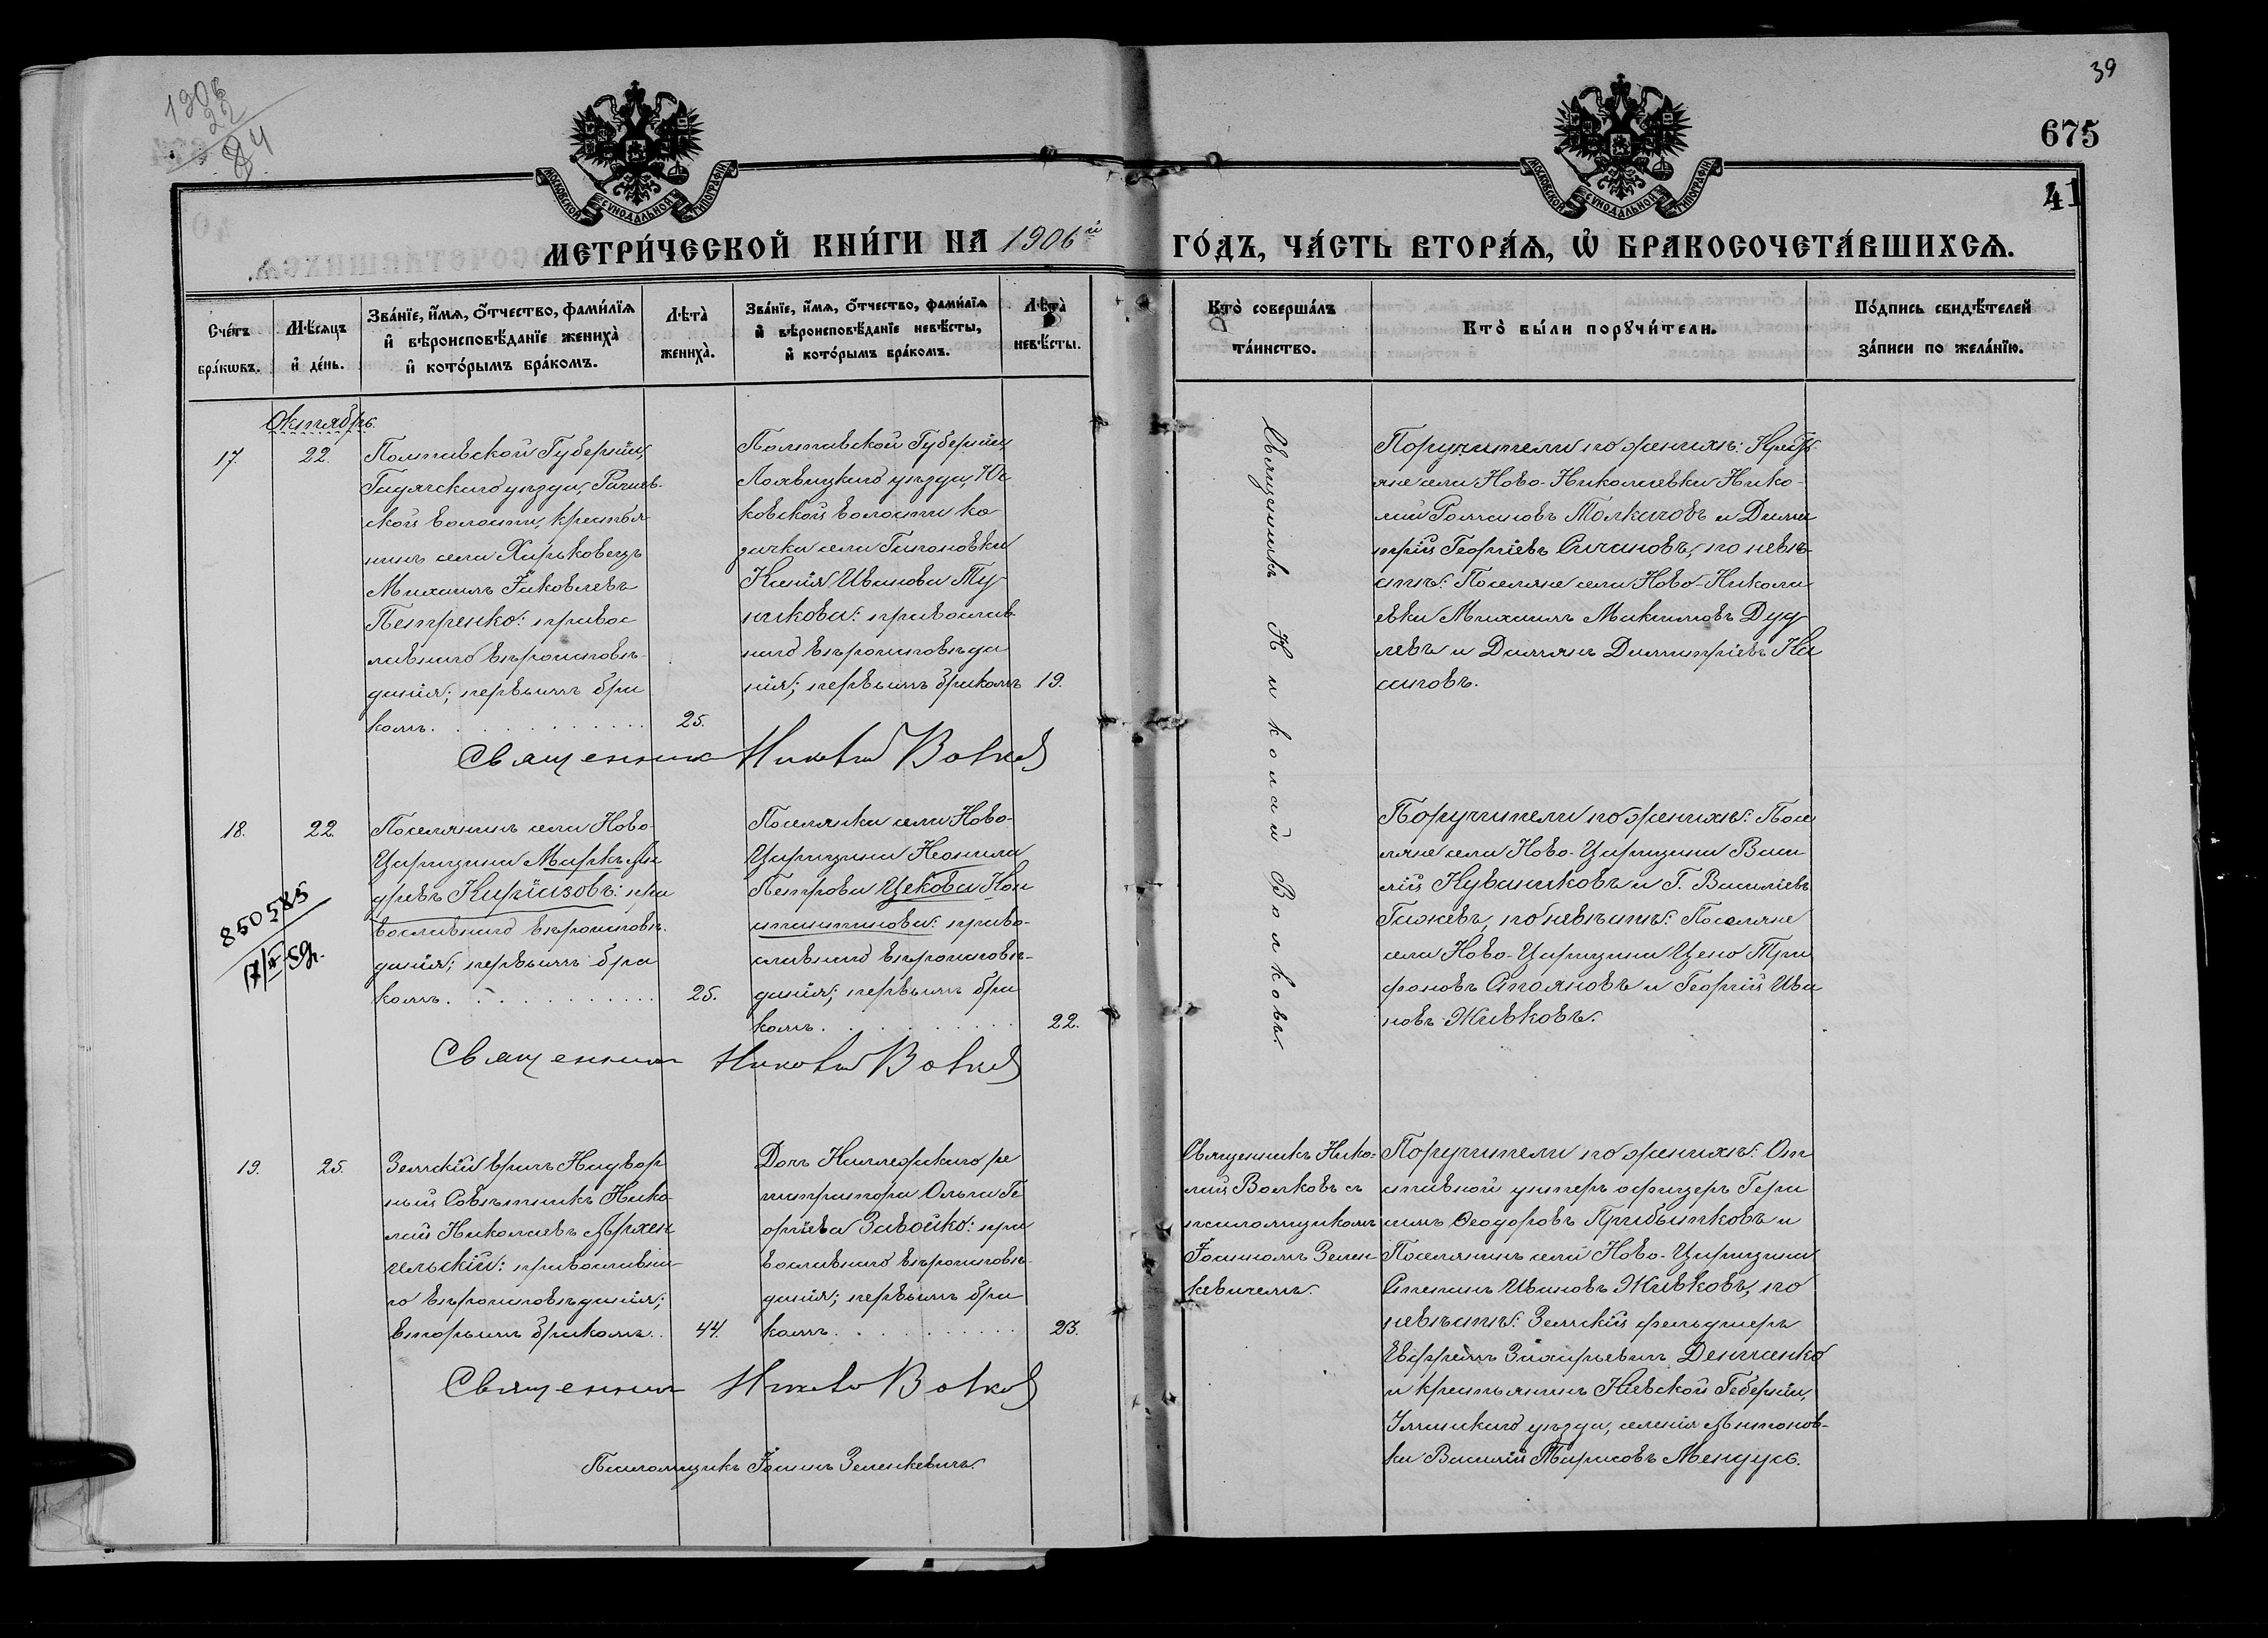 1906
22
84
39
675
41
МОСКОВСКОЙ СѴНОДАЛЬНОЙ ТИПОГРАФІИ
МОСКОВСКОЙ СѴНОДАЛЬНОЙ ТИПОГРАФІИ
МЕТРИ́ЧЕСКОЙ КНИ́ГИ НА 1906й ГО́ДЪ, ЧА́СТЬ ВТОРА́Ѧ, Ѡ҆ БРАКОСОЧЕТА́ВШИХСѦ.
Сче́тъ
бра́кѡвъ.
Мѣ́сѧцъ
и҆ де́нь.
Зва́нїе, и҆́мѧ, о҆́тчество, фами́лїѧ
и҆ вѣроисповѣ́данїе жениха̀
и҆ кото́рымъ бра́комъ.
Лѣта̀
жениха̀.
Зва́нїе, и҆́мѧ, о҆́тчество, фами́лїѧ
и҆ вѣроисповѣ́данїе невѣ́сты,
и҆ кото́рымъ бра́комъ.
Лѣта̀
невѣ́сты.
Кто̀ соверша́лъ
та́инство.
Кто̀ бы́ли порꙋчи́тели.
По́дпись свидѣ́телей
за́писи по жела́нїю.
Октябрь.
17.
22.
Полтавской Губерніи,
Гадячскаго уѣзда, Рашев-
ской волости, крестья
нинъ села Харьковецъ
Михаилъ Іаковлевъ
Петренко: правос
лавнаго вѣроисповѣ-
данія; первымъ бра
комъ.
25.
Полтавской Губерніи,
Лохвицкаго уѣзда, Юс
ковской волости ка
зачка села
Ксенія Иванова Ту
никова: православ
наго вѣроисповѣда
нія; первымъ бракомъ
19.
Священникъ Николай Волковъ
Священникъ Николай Волковъ.
Поручители по женихѣ: Крестья
яне села Ново-Николаевки Нико-
лай Романовъ Толкачовъ и Дими
трій Георгіевъ Сичановъ, по невѣ-
стѣ: Поселяне села Ново-Никола
евки Михаилъ Максимовъ Дуд
левъ и Даміанъ Димитріевъ Ка
саповъ.
18.
22
850585
17/II-59г.
Поселянинъ села Ново-
Царицына Маркъ Ан
древъ Киріазовъ: пра
вославнаго вѣроисповѣ-
данія; первымъ бра
комъ.
25.
Поселянка села Ново-
Царицына Неонила
Петрова Цекова Кон
стантинова: право-
славнаго вѣроисповѣ-
данія; первымъ бра
комъ.
22.
Священникъ Николай Волковъ
Поручители по женихѣ: Посе
ляне села Ново-Царицына Васи
лій Куванжовъ и Г. Василіевъ
Гижевъ, по невѣстѣ: Поселяне
села Ново-Царицына Цено Три
фоновъ Стояновъ и Георгій Ива
новъ Живковъ.
19.
25.
Земскій врачъ Надвор
ный Совѣтникъ Нико-
лай Николаевъ Архан
гельскій: православна-
го вѣроисповѣданія;
вторымъ бракомъ.
44.
Дочь Коллежскаго ре
гистратора Ольга Ге
оргіева Завойко: пра
вославнаго вѣроисповѣ-
данія; первымъ бра
комъ.
23.
Священникъ Николай Волковъ
Псаломщикъ Іоаннъ Зеленкевичъ.
Священникъ Нико-
лай Волковъ съ
псаломщикомъ
Іоанномъ Зелен
кевичемъ.
Поручители по женихѣ: От
ставной унтеръ офицеръ Гера
симъ Ѳеодоровъ Прибытковъ и
Поселянинъ села Ново-Царицына
Степанъ Ивановъ Живковъ, по
невѣстѣ: Земскій фельдшеръ
Евфремъ Захарьевичъ Демченко
и крестьянинъ Кіевской Губерніи,
Уманскаго уѣзда, селенія Антонов-
ки Василій Тарасовъ Мендусъ.